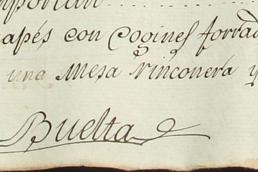 importan
apés con Cogines forrad
una Mesa rinconera y
Buelta